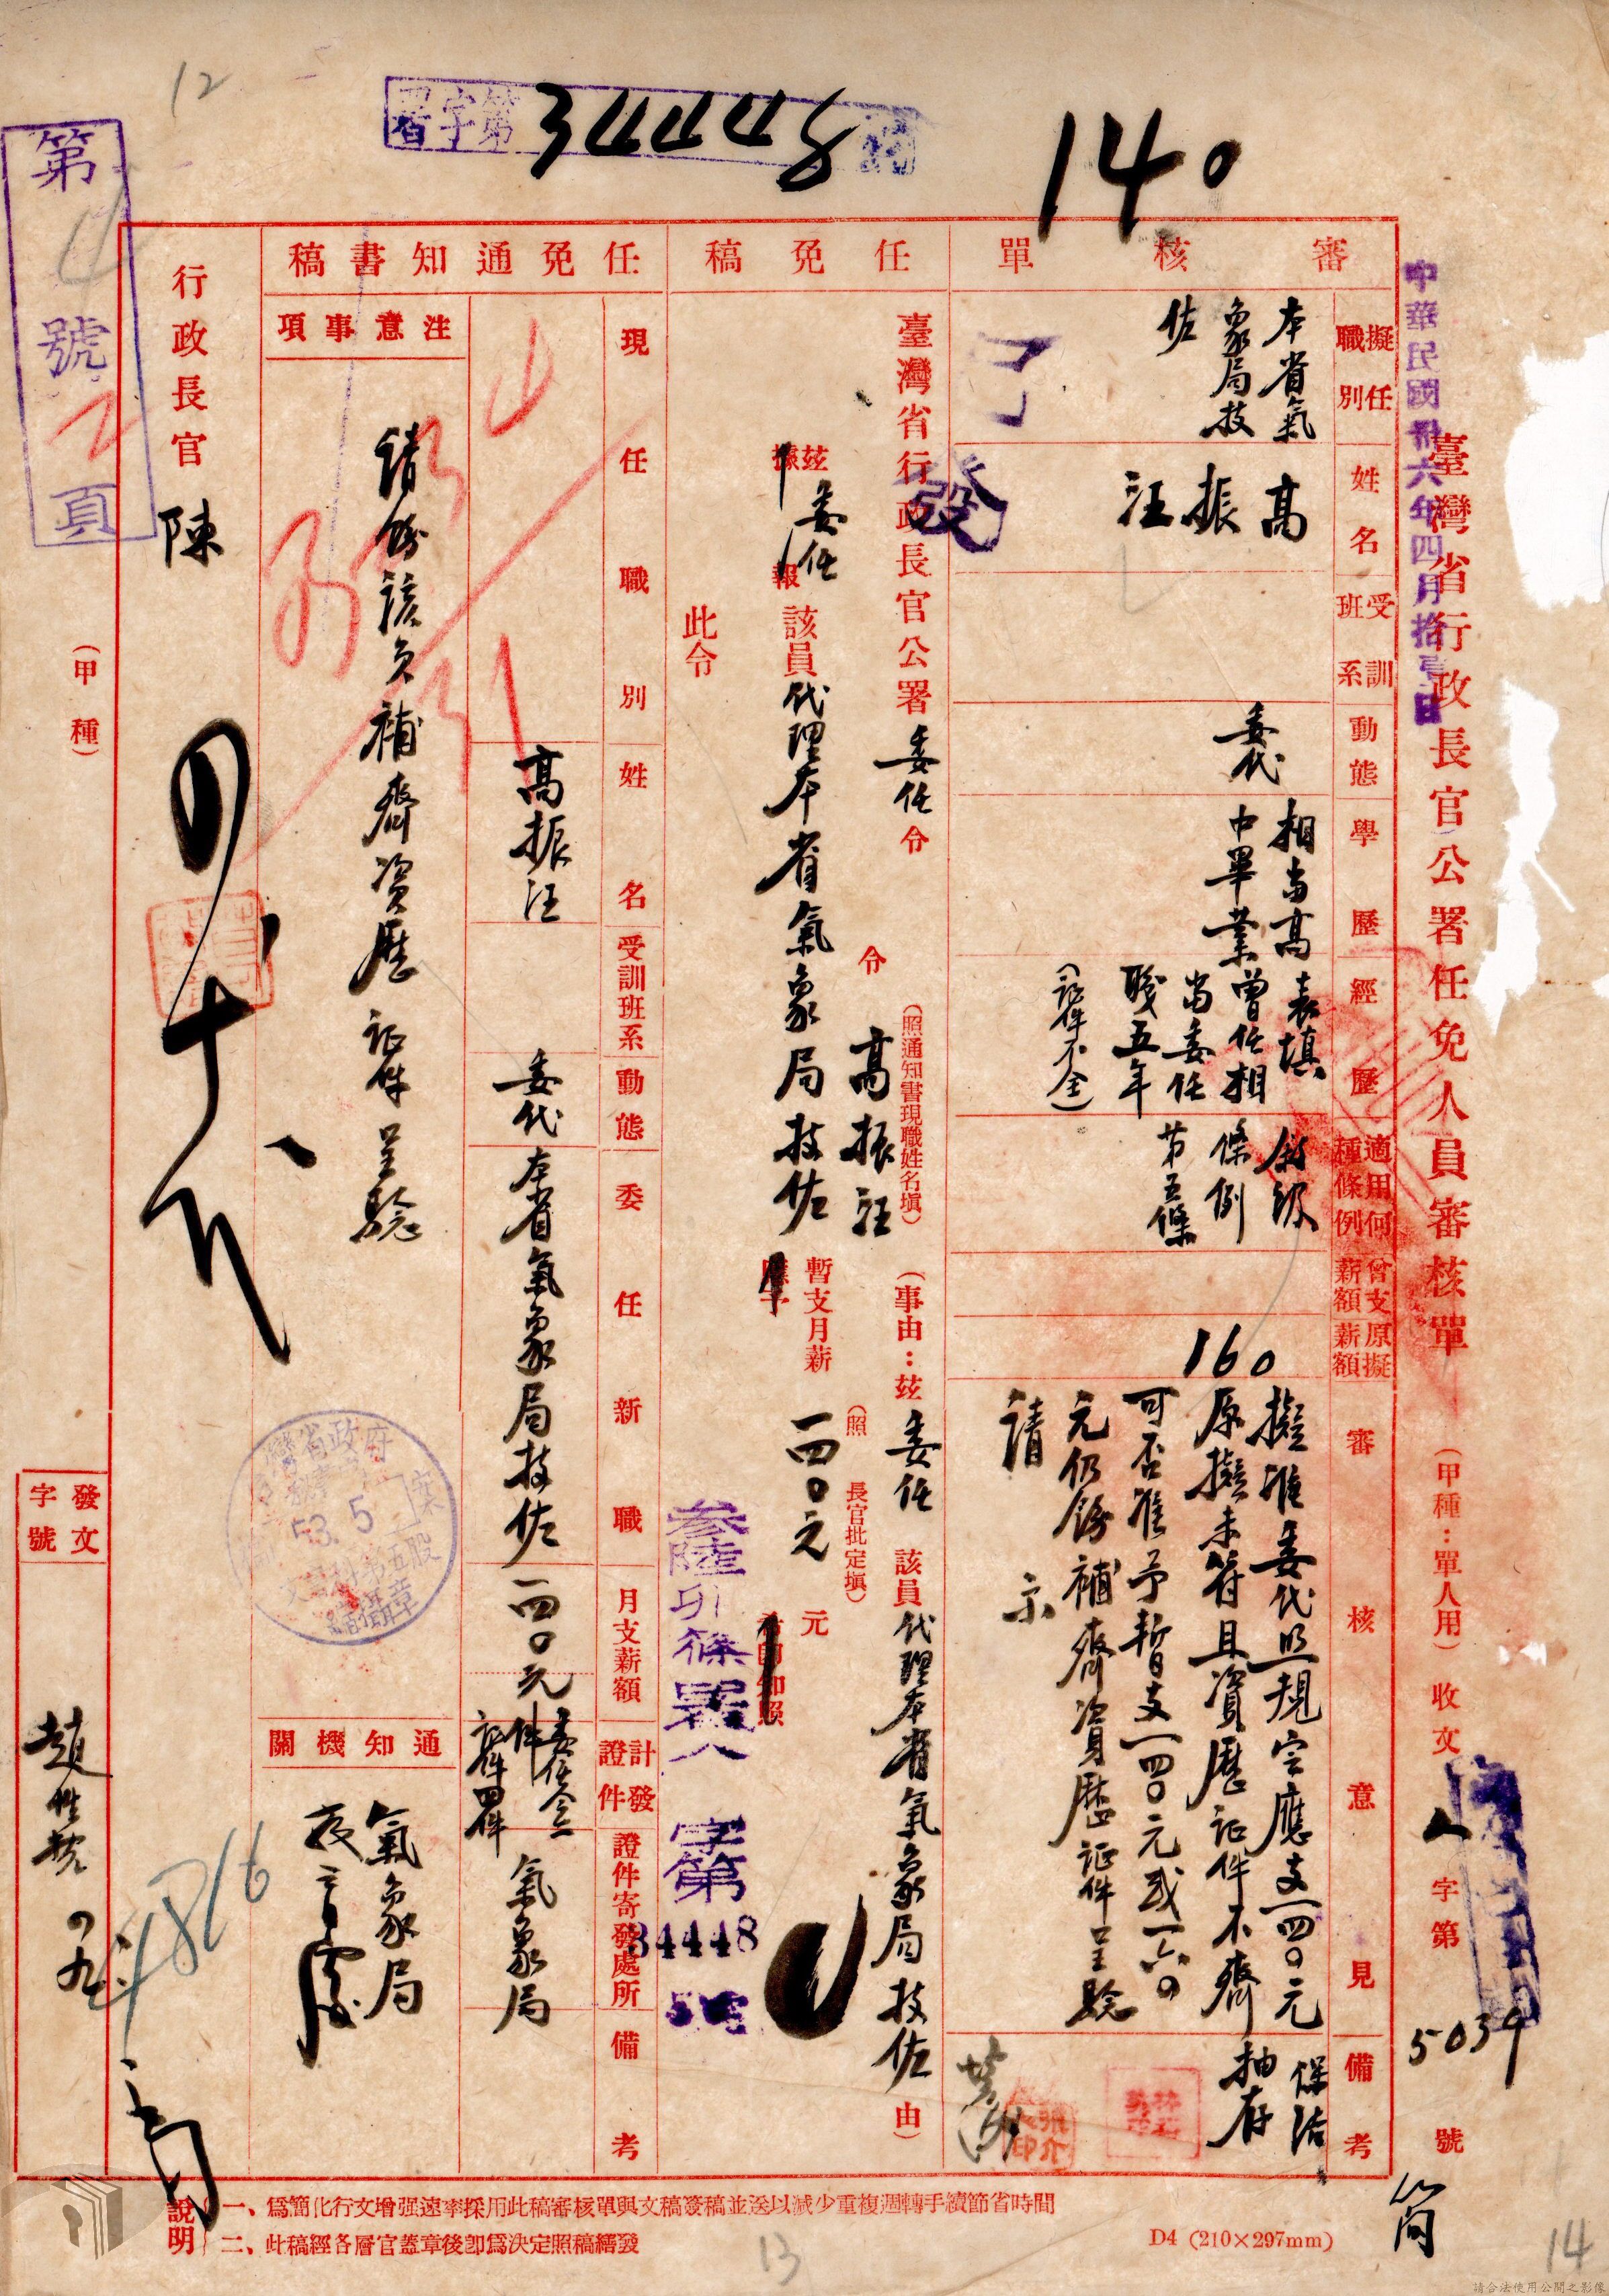 臺灣省行政長官公署任免人員審核單
(甲種：單人用)收文
人字第
5039
號
中華民國卅六年四月拾
日
140
署字第
34448
號
12
第4號2頁
審核單
擬任職別
本省氣象局技佐
姓名
高振汪
受訓班系
動態
委代
學歷
相當高中畢業
經歷
表填曾任相當委任職五年(証件不全)
適用何種條例
敘級條例第五條
曾支薪額
原擬薪額
160
審核意見
擬准委代照規定應支一四〇元
原擬未符且資歷証件不齊
可否准予暫支一四〇元或一六〇
元仍飭補齊資歷証件呈驗
請
示
備考
保結抽存
任免稿
臺灣省行政長官公署委任令
(事由：茲委任該員代理本省氣象局技佐由)
令高振汪
(照通知書現職姓名填)
茲委任該員代理本省氣象局技佐
暫支月薪一四〇元
元
(照長官批定填)
此令
發
参陸卯篠署人字第
34448
號
任免通知書稿
現任職別
姓名
高振汪
受訓班系
動態
委代
委任新職
本省氣象局技佐
月支薪額
一四〇元
計發證件
委任令件
証件四件
證件寄發處所
氣象局
備考
注意事項
請飭該員補齊資歷証件呈驗
通知機關
氣象局
行政長官
陳
(甲種)
53.5
發文字號
4816
說明
一、爲簡化行文增强速率採用此稿審核單與文稿簽稿並送以减少重複週轉手續節省時間
二、此稿經各層官蓋章後卽爲決定照稿繕發
D4 (210×297mm)
13
14
請合法使用公開之影像